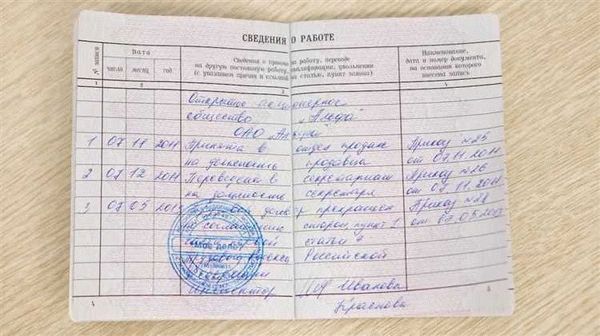 СВЕДЕНИЯ О РАБОТЕ
№ записи
Дата
число
месяц
год
Сведения о приеме на работу, переводе
на другую постоянную работу, квалификации, увольнении
(с указанием причин и ссылкой на статью, пункт закона)
Наименование,
дата и номер документа,
на основании которого
внесена запись
1 2 3 4
Открытое акционерное
общество "Альфа"
ОАО "Альфа"
1 07 11 2011 Принята в отдел продаж
на должность продавца
Приказ №25
от 07.11.2011
2 07 12 2011 Переведена в секретариат
на должность секретаря
Приказ №26
от 07.12.2011
3 07 05 прекращен
по соглашению сторон, пункт 1
статьи
кодекса
Российской
Федерации
Приказ №28
от 07.05
МОЕ ДЕЛО
Инспектор Иванова
Краснова
4
5